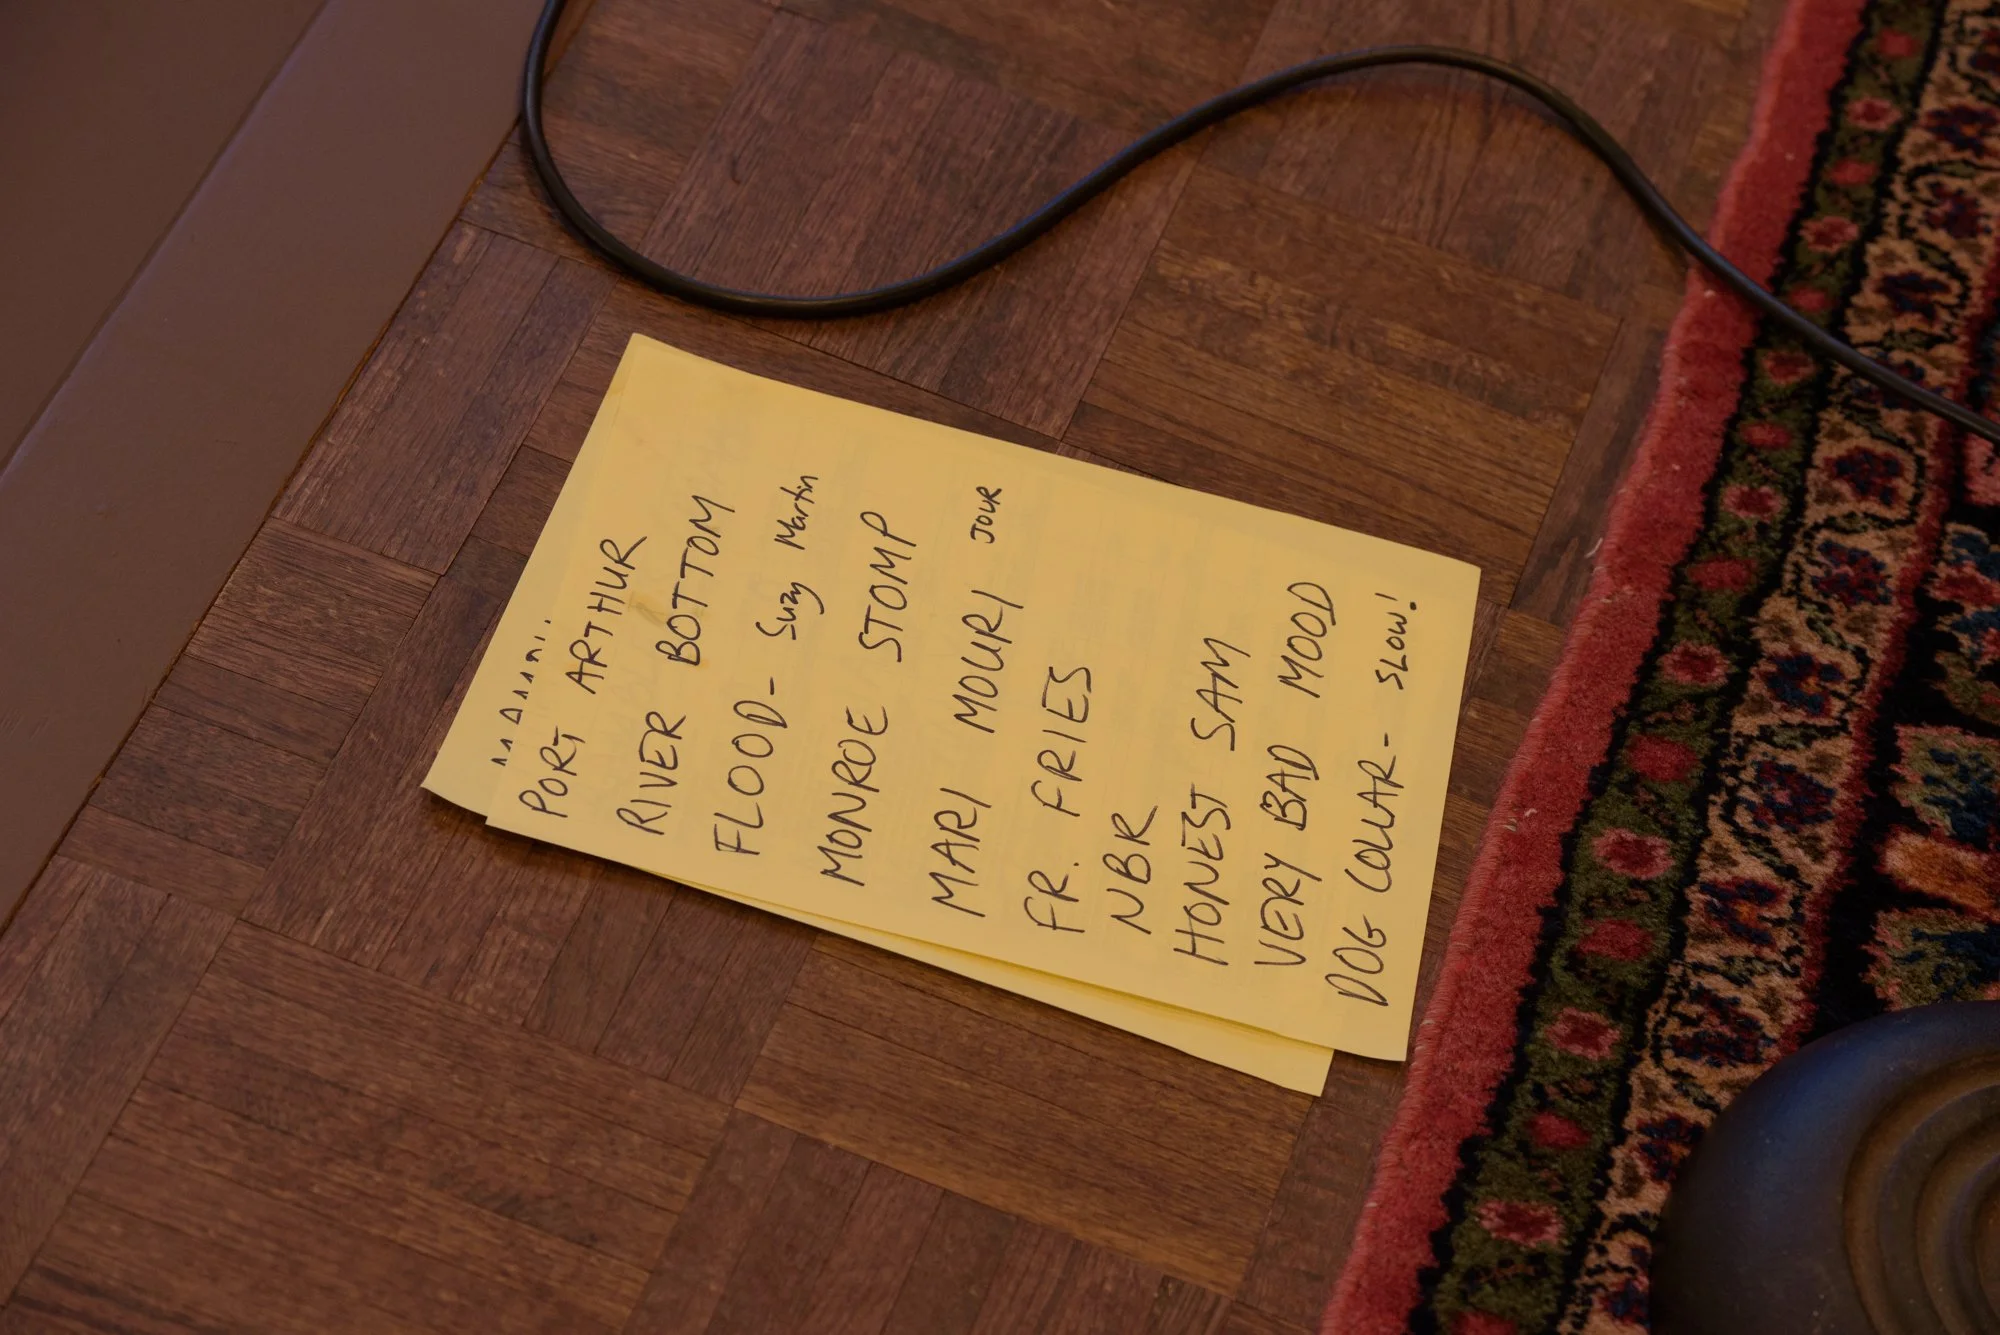 PORT ARTHUR
RIVER BOTTOM
FLOOD - Suzy Martin
MONROE STOMP
MARI MOURI JOUR
FR. FRIES
NBR
HONEST SAM
VERY BAD MOOD
DOG COLLAR - SLOW!